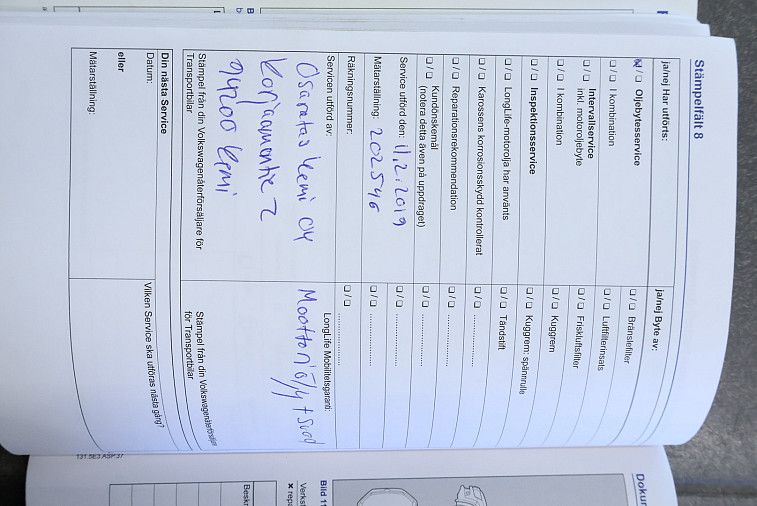 Stämpelfält 8
ja/nej Har utförts:
❑ / ❑ Oljebytesservice
❑ / ❑ I kombination
❑ / ❑ Intervallservice
inkl. motoroljebyte
❑ / ❑ I kombination
❑ / ❑ Inspektionsservice
❑ / ❑ LongLife-motorolja har använts
❑ / ❑ Karossens korrosionsskydd kontrollerat
❑ / ❑ Reparationsrekommendation
❑ / ❑ Kundönskemål
(notera detta även på uppdraget)
Service utförd den: 11.2.2019
Mätarställning: 202546
Räkningsnummer:
Servicen utförd av:
Osaratas Kemi Oy
Korjaamontie 2
94200 Kemi
Stämpel från din Volkswagenåterförsäljare för
Transportbilar
Din nästa Service
Datum:
eller
Mätarställning:
ja/nej Byte av:
❑ / ❑ Bränslefilter
❑ / ❑ Luftfilterinsats
❑ / ❑ Friskluftsfilter
❑ / ❑ Kuggrem
❑ / ❑ Kuggrem: spännrulle
❑ / ❑ Tändstift
❑ / ❑ ....................
❑ / ❑ ....................
❑ / ❑ ....................
❑ / ❑ ....................
❑ / ❑ ....................
❑ / ❑ ....................
LongLife Mobilitetsgaranti:
Moottoriöljy + suod
Stämpel från din Volkswagenåterförsäljare
för Transportbilar
Vilken Service ska utföras nästa gång?
131.5E3.ASP.37
Dokur
Bild 11
Verkst
× repa
Beskr